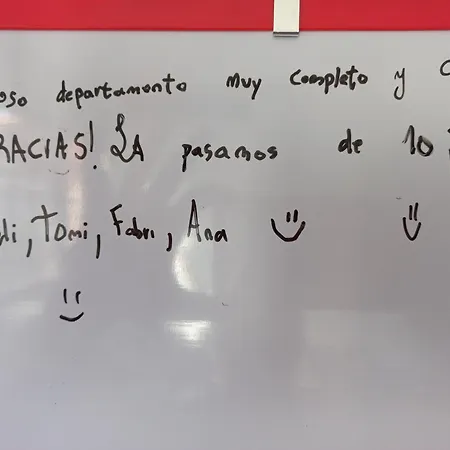 departamento muy completo y
GRACIAS! LA pasamos de 10
Tomi, Fabri, Ana